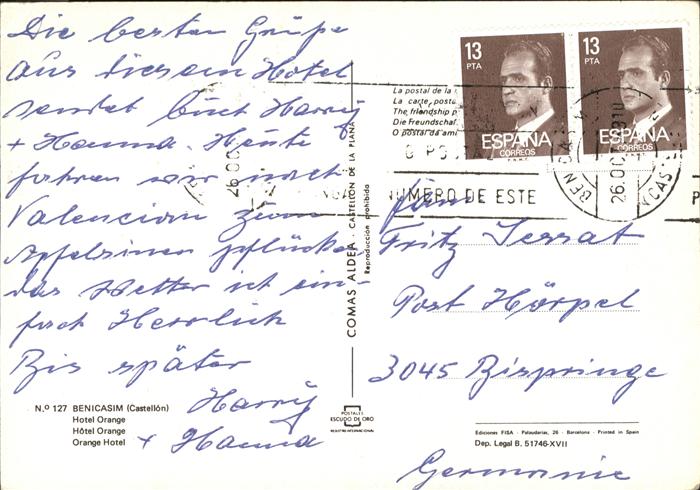 Die besten Grüße
aus diesem Hotel
sendet Euch Harry
+ Hanna. Heute
fahren wir nach
Valencian zum
Apfelsinen pflücken
das Wetter ist ein-
fach Herrlich
Bis später
Harry
+ Hanna
N.º 127 BENICASIM (Castellón)
Hotel Orange
Hôtel Orange
Orange Hotel
COMAS ALDEA - CASTELLÓN DE LA PLANA
Reproducción prohibida
POSTALES
ESCUDO DE ORO
REGISTRO INTERNACIONAL
13
PTA
ESPAÑA
CORREOS
13
PTA
ESPAÑA
CORREOS
La postal de la
La carte, posta
The friendship p
Die Freundschaf
O postal da ami
26.OC
NUMERO DE ESTE
BENICAS
26.OC
CASTE
P
Fritz Serrat
Post Hörpel
3045 Bispringe
Germanie
Ediciones FISA - Palaudarias, 26 - Barcelona - Printed in Spain
Dep. Legal B. 51746-XVII